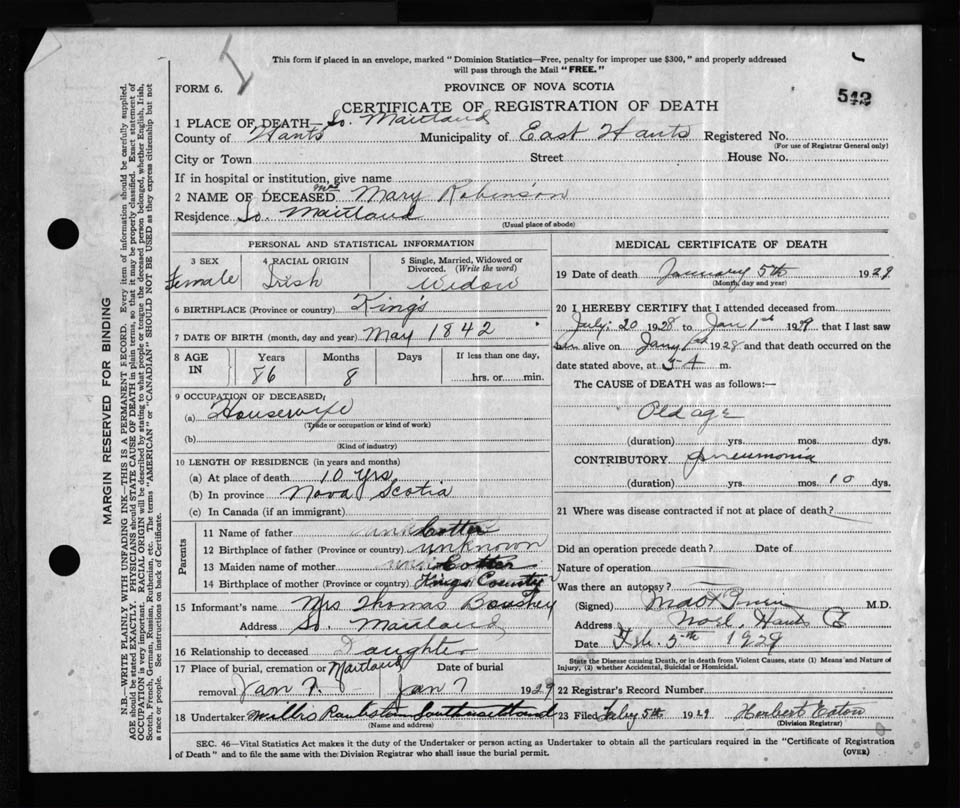 This form if placed in an envelope, marked "Dominion Statistics—Free, penalty for improper use $300," and properly addressed
will pass through the Mail "FREE."
FORM 6.
PROVINCE OF NOVA SCOTIA
542
CERTIFICATE OF REGISTRATION OF DEATH
1 PLACE OF DEATH—So. Maitland
County of Hants Municipality of East Hants Registered No.
(For use of Registrar General only)
City or Town Street House No.
If in hospital or institution, give name
2 NAME OF DECEASED Mrs Mary Robinson
Residence So. Maitland
(Usual place of abode)
PERSONAL AND STATISTICAL INFORMATION
3 SEX 4 RACIAL ORIGIN 5 Single, Married, Widowed or Divorced. (Write the word)
Female Irish Widow
6 BIRTHPLACE (Province or country) King's
7 DATE OF BIRTH (month, day and year) May 1842
8 AGE IN Years Months Days If less than one day,
86 8 hrs. or min.
9 OCCUPATION OF DECEASED:
(a) Housewife
(Trade or occupation or kind of work)
(b)
(Kind of industry)
10 LENGTH OF RESIDENCE (in years and months)
(a) At place of death 10 yrs
(b) In province Nova Scotia
(c) In Canada (if an immigrant)
Parents
11 Name of father Cotter
12 Birthplace of father (Province or country) unknown
13 Maiden name of mother Cotter
14 Birthplace of mother (Province or country) Kings County
15 Informant's name Mrs Thomas
Address So. Maitland
16 Relationship to deceased Daughter
17 Place of burial, cremation or removal Maitland Date of burial
Jan 7 Jan 7 1929
18 Undertaker South Maitland
(Name and address)
MEDICAL CERTIFICATE OF DEATH
19 Date of death January 5th 1929
(Month, day and year)
20 I HEREBY CERTIFY that I attended deceased from
July 20 1928 to Jan 1st 1929 that I last saw
her alive on Jany 1st 1928 and that death occurred on the
date stated above, at 5 A m.
The CAUSE of DEATH was as follows:—
Old age
(duration) yrs. mos. dys.
CONTRIBUTORY pneumonia
(duration) yrs. mos. 10 dys.
21 Where was disease contracted if not at place of death?
Did an operation precede death? Date of
Nature of operation
Was there an autopsy?
(Signed) M.D.
Address Noel, Hants Co
Date Feb. 5th 1929
State the Disease causing Death, or in death from Violent Causes, state (1) Means and Nature of
Injury; (2) whether Accidental, Suicidal or Homicidal.
22 Registrar's Record Number
23 Filed Feby 5th 1929 Herbert Eaton
(Division Registrar)
SEC. 46—Vital Statistics Act makes it the duty of the Undertaker or person acting as Undertaker to obtain all the particulars required in the "Certificate of Registration
of Death" and to file the same with the Division Registrar who shall issue the burial permit.
(OVER)
MARGIN RESERVED FOR BINDING
N.B.—WRITE PLAINLY WITH UNFADING INK—THIS IS A PERMANENT RECORD. Every item of information should be carefully supplied.
AGE should be stated EXACTLY. PHYSICIANS should STATE CAUSE OF DEATH in plain terms, so that it may be properly classified. Exact statement of
OCCUPATION is very important. RACIAL ORIGIN will be described by stating to what people or tongue the deceased person belonged, whether English, Irish,
Scotch, French, German, Russian, Ruthenian, etc. The terms "AMERICAN" or "CANADIAN" SHOULD NOT BE USED as they express citizenship but not
a race or people. See instructions on back of Certificate.